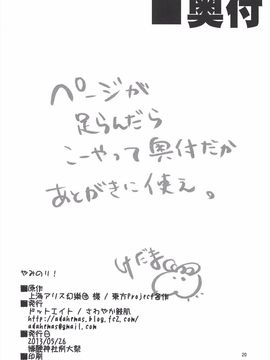 ■奥付
ページが
足らんだら
こーやって奥付だか
あとがきに使え。
けだま
やみのり!
■原作
上海アリス幻樂団 様 / 東方Project各作
■発行
ドットエイト / さわやか鮫肌
http://adahrmas.blog.fc2.com/
adahrmas@gmail.com
■発行
2013/05/26
博麗神社例大祭
■印刷
20